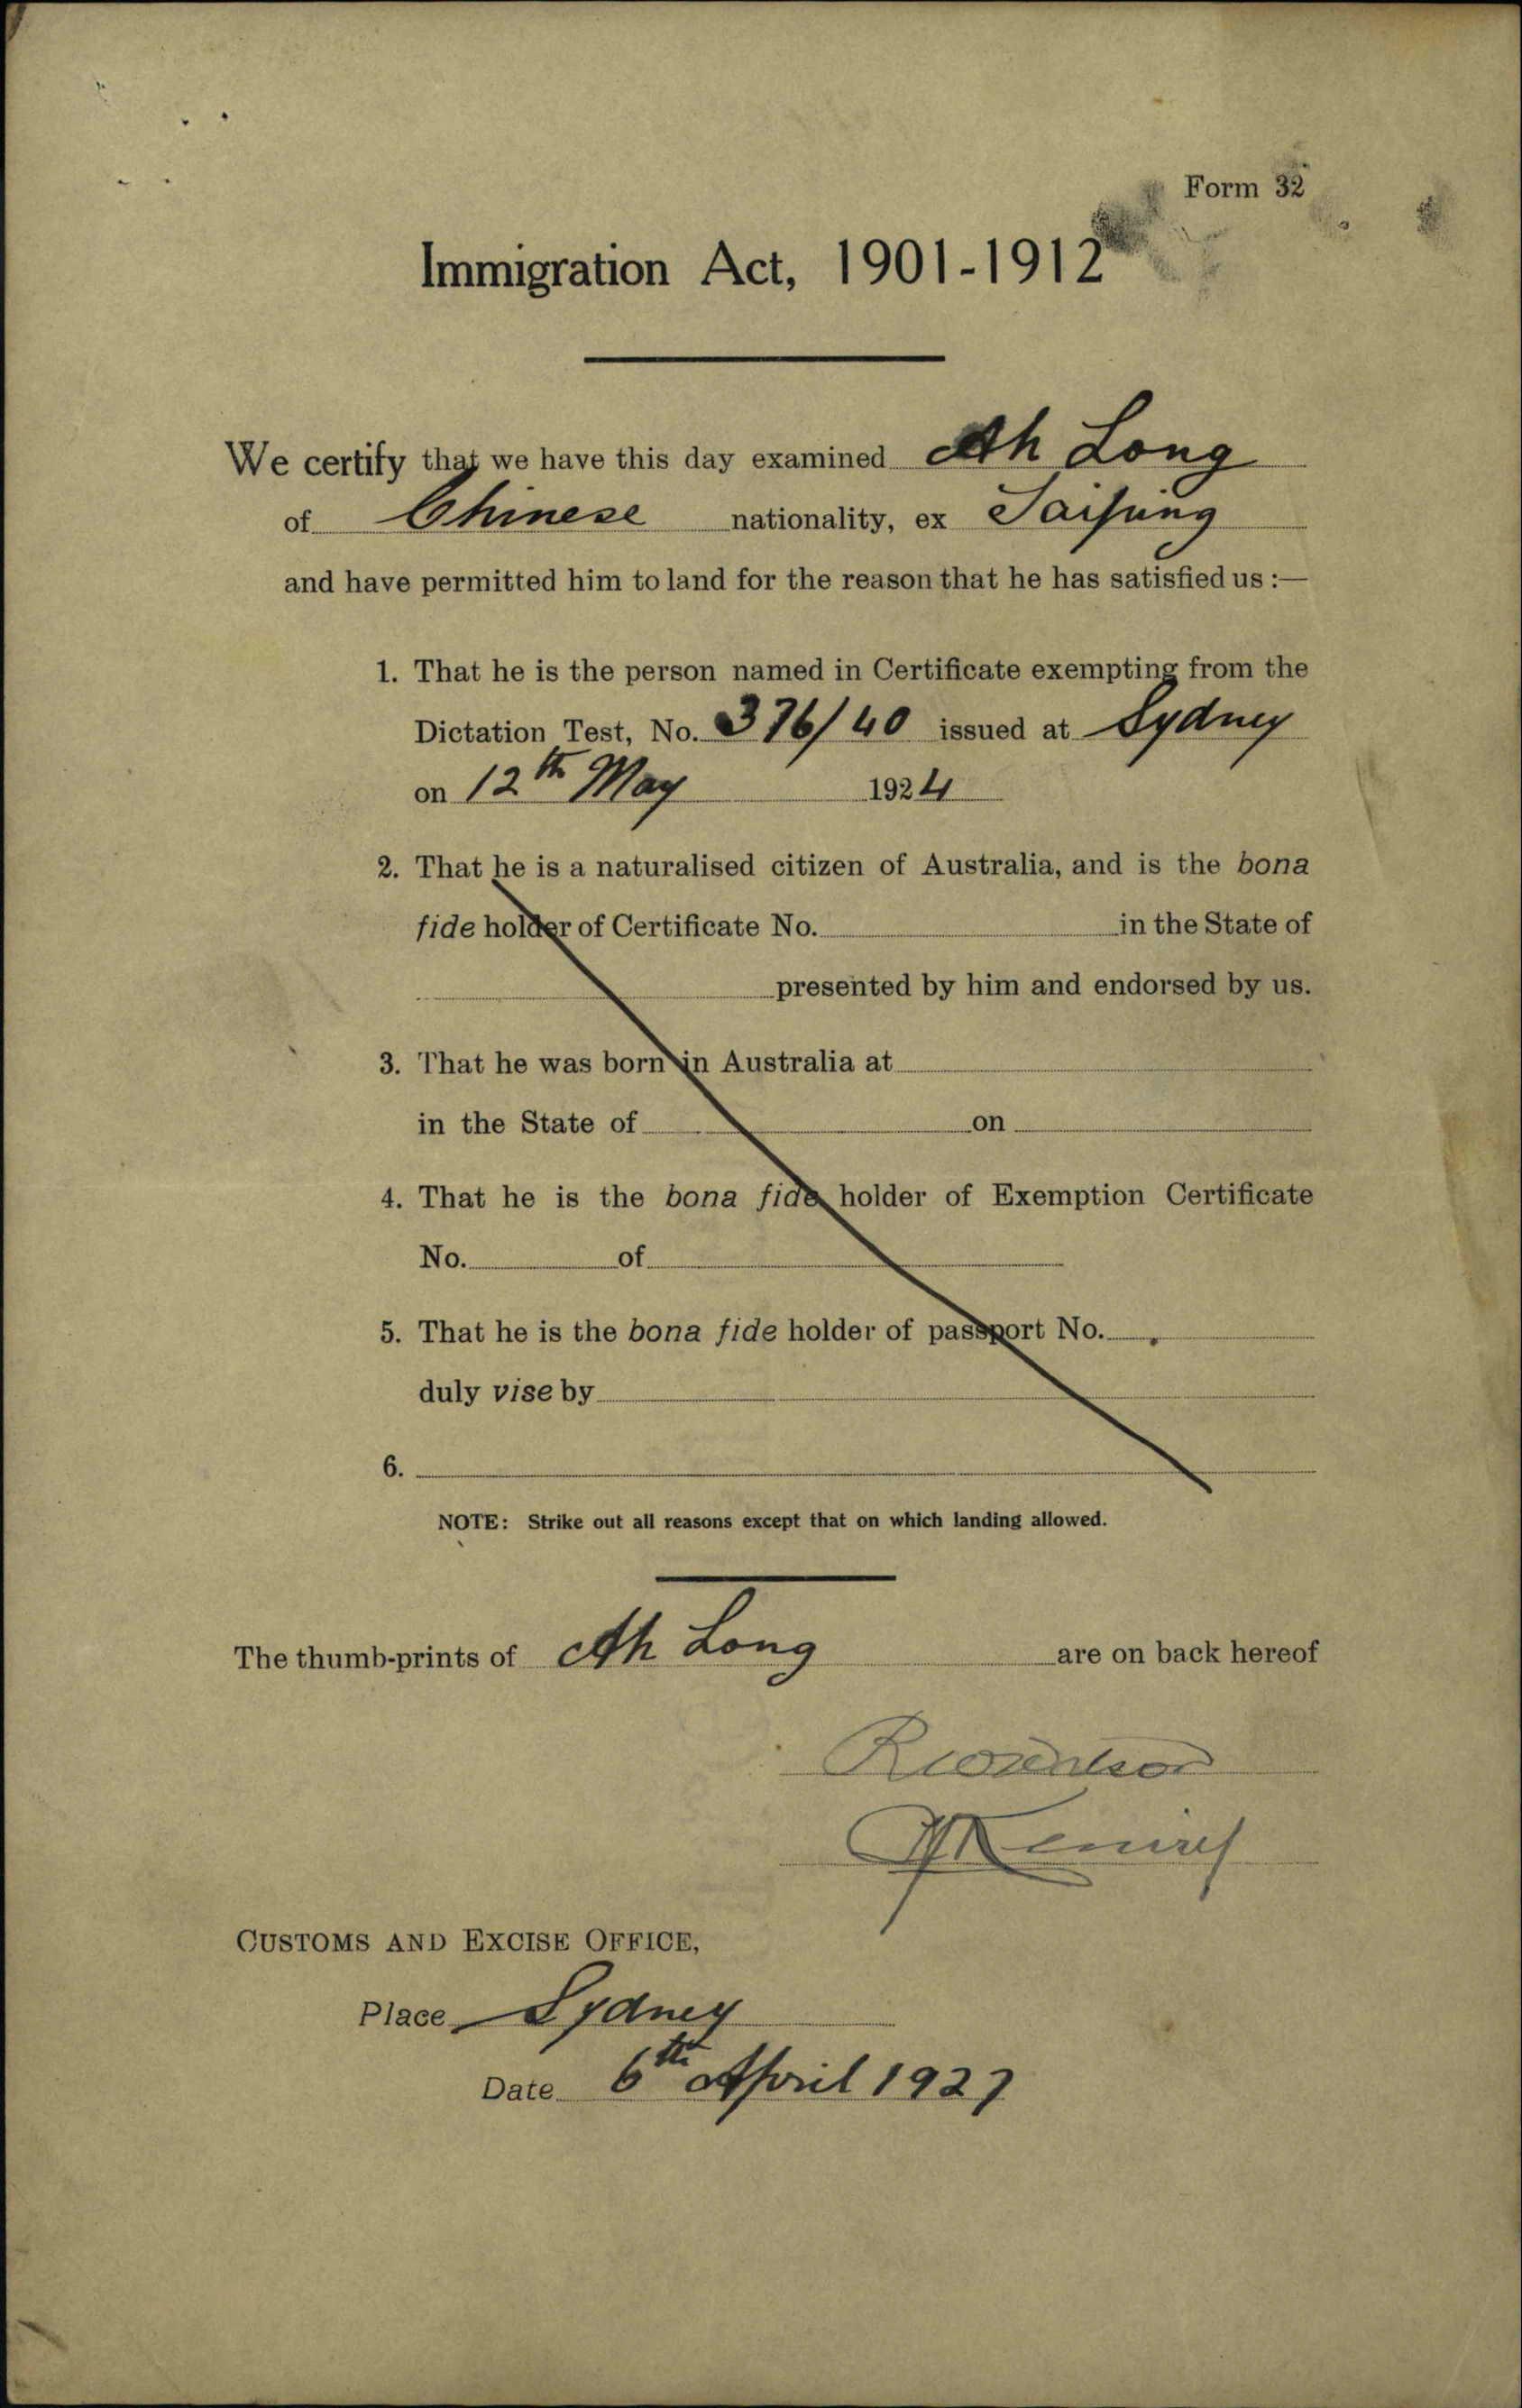 Form 32
Immigration Act, 1901-1912
We certify that we have this day examined Ah Long
of Chinese nationality, ex Taiping
and have permitted him to land for the reason that he has satisfied us :—
1. That he is the person named in Certificate exempting from the
Dictation Test, No. 376/40 issued at Sydney
on 12th May 1924
2. That he is a naturalised citizen of Australia, and is the bona
fide holder of Certificate No. in the State of
presented by him and endorsed by us.
3. That he was born in Australia at
in the State of on
4. That he is the bona fide holder of Exemption Certificate
No. of
5. That he is the bona fide holder of passport No.
duly vise by
6.
NOTE: Strike out all reasons except that on which landing allowed.
The thumb-prints of Ah Long are on back hereof
CUSTOMS AND EXCISE OFFICE,
Place Sydney
Date 6th April 1927